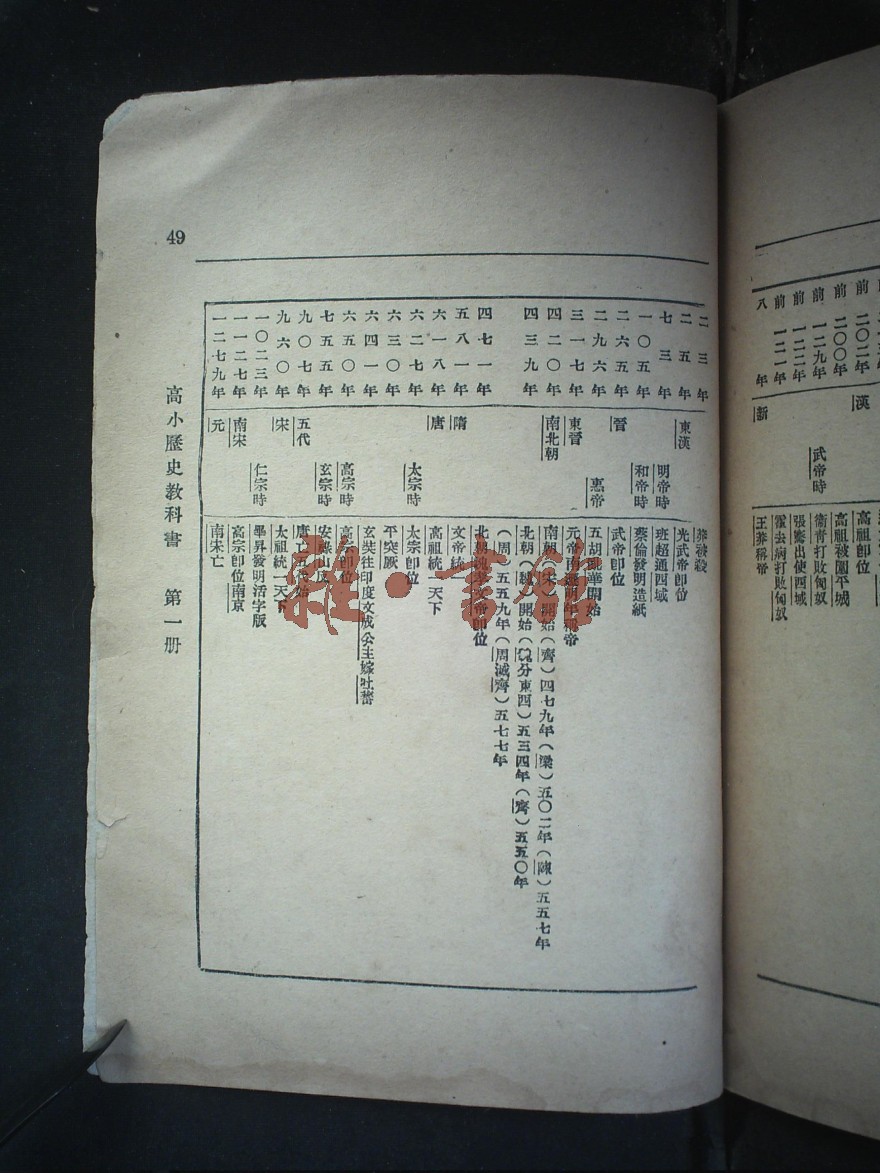 前 二〇二年 漢 高祖
前 二〇〇年 高祖被圍平城
前 一二九年 武帝時 衞青打敗匈奴
前 一二二年 張騫出使西域
前 一二一年 霍去病打敗匈奴
八 年 新 王莽稱帝
二三年 莽被殺
二五年 東漢 光武帝卽位
七三年 明帝時 班超通西域
一〇五年 和帝時 蔡倫發明造紙
二六五年 晉 武帝卽位
二九六年 惠帝 五胡亂華開始
三一七年 東晉 元帝南遷 稱帝
四二〇年 南北朝 南朝(宋)開始(齊)四七九年(梁)五〇二年(陳)五五七年
四三九年 北朝(魏)開始(魏分東西)五三四年(齊)五五〇年
(周)五五九年(周滅齊)五七七年
四七一年 北朝魏孝文帝卽位
五八一年 隋 文帝統一
六一八年 唐 高祖統一天下
六二七年 太宗時 太宗卽位
六三〇年 平突厥
六四一年 玄奘往印度文成公主嫁吐蕃
六五〇年 高宗時 高宗卽位
七五五年 玄宗時 安祿山反
九〇七年 五代 唐亡五代始
九六〇年 宋 太祖統一天下
一〇二三年 仁宗時 畢昇發明活字版
一一二七年 南宋 高宗卽位南京
一二七九年 元 南宋亡
高小歷史教科書 第一册
49
雜·書館